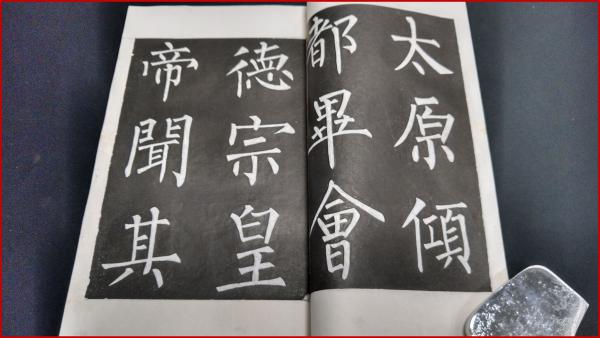 太原傾
都畢會
德宗皇
帝聞其